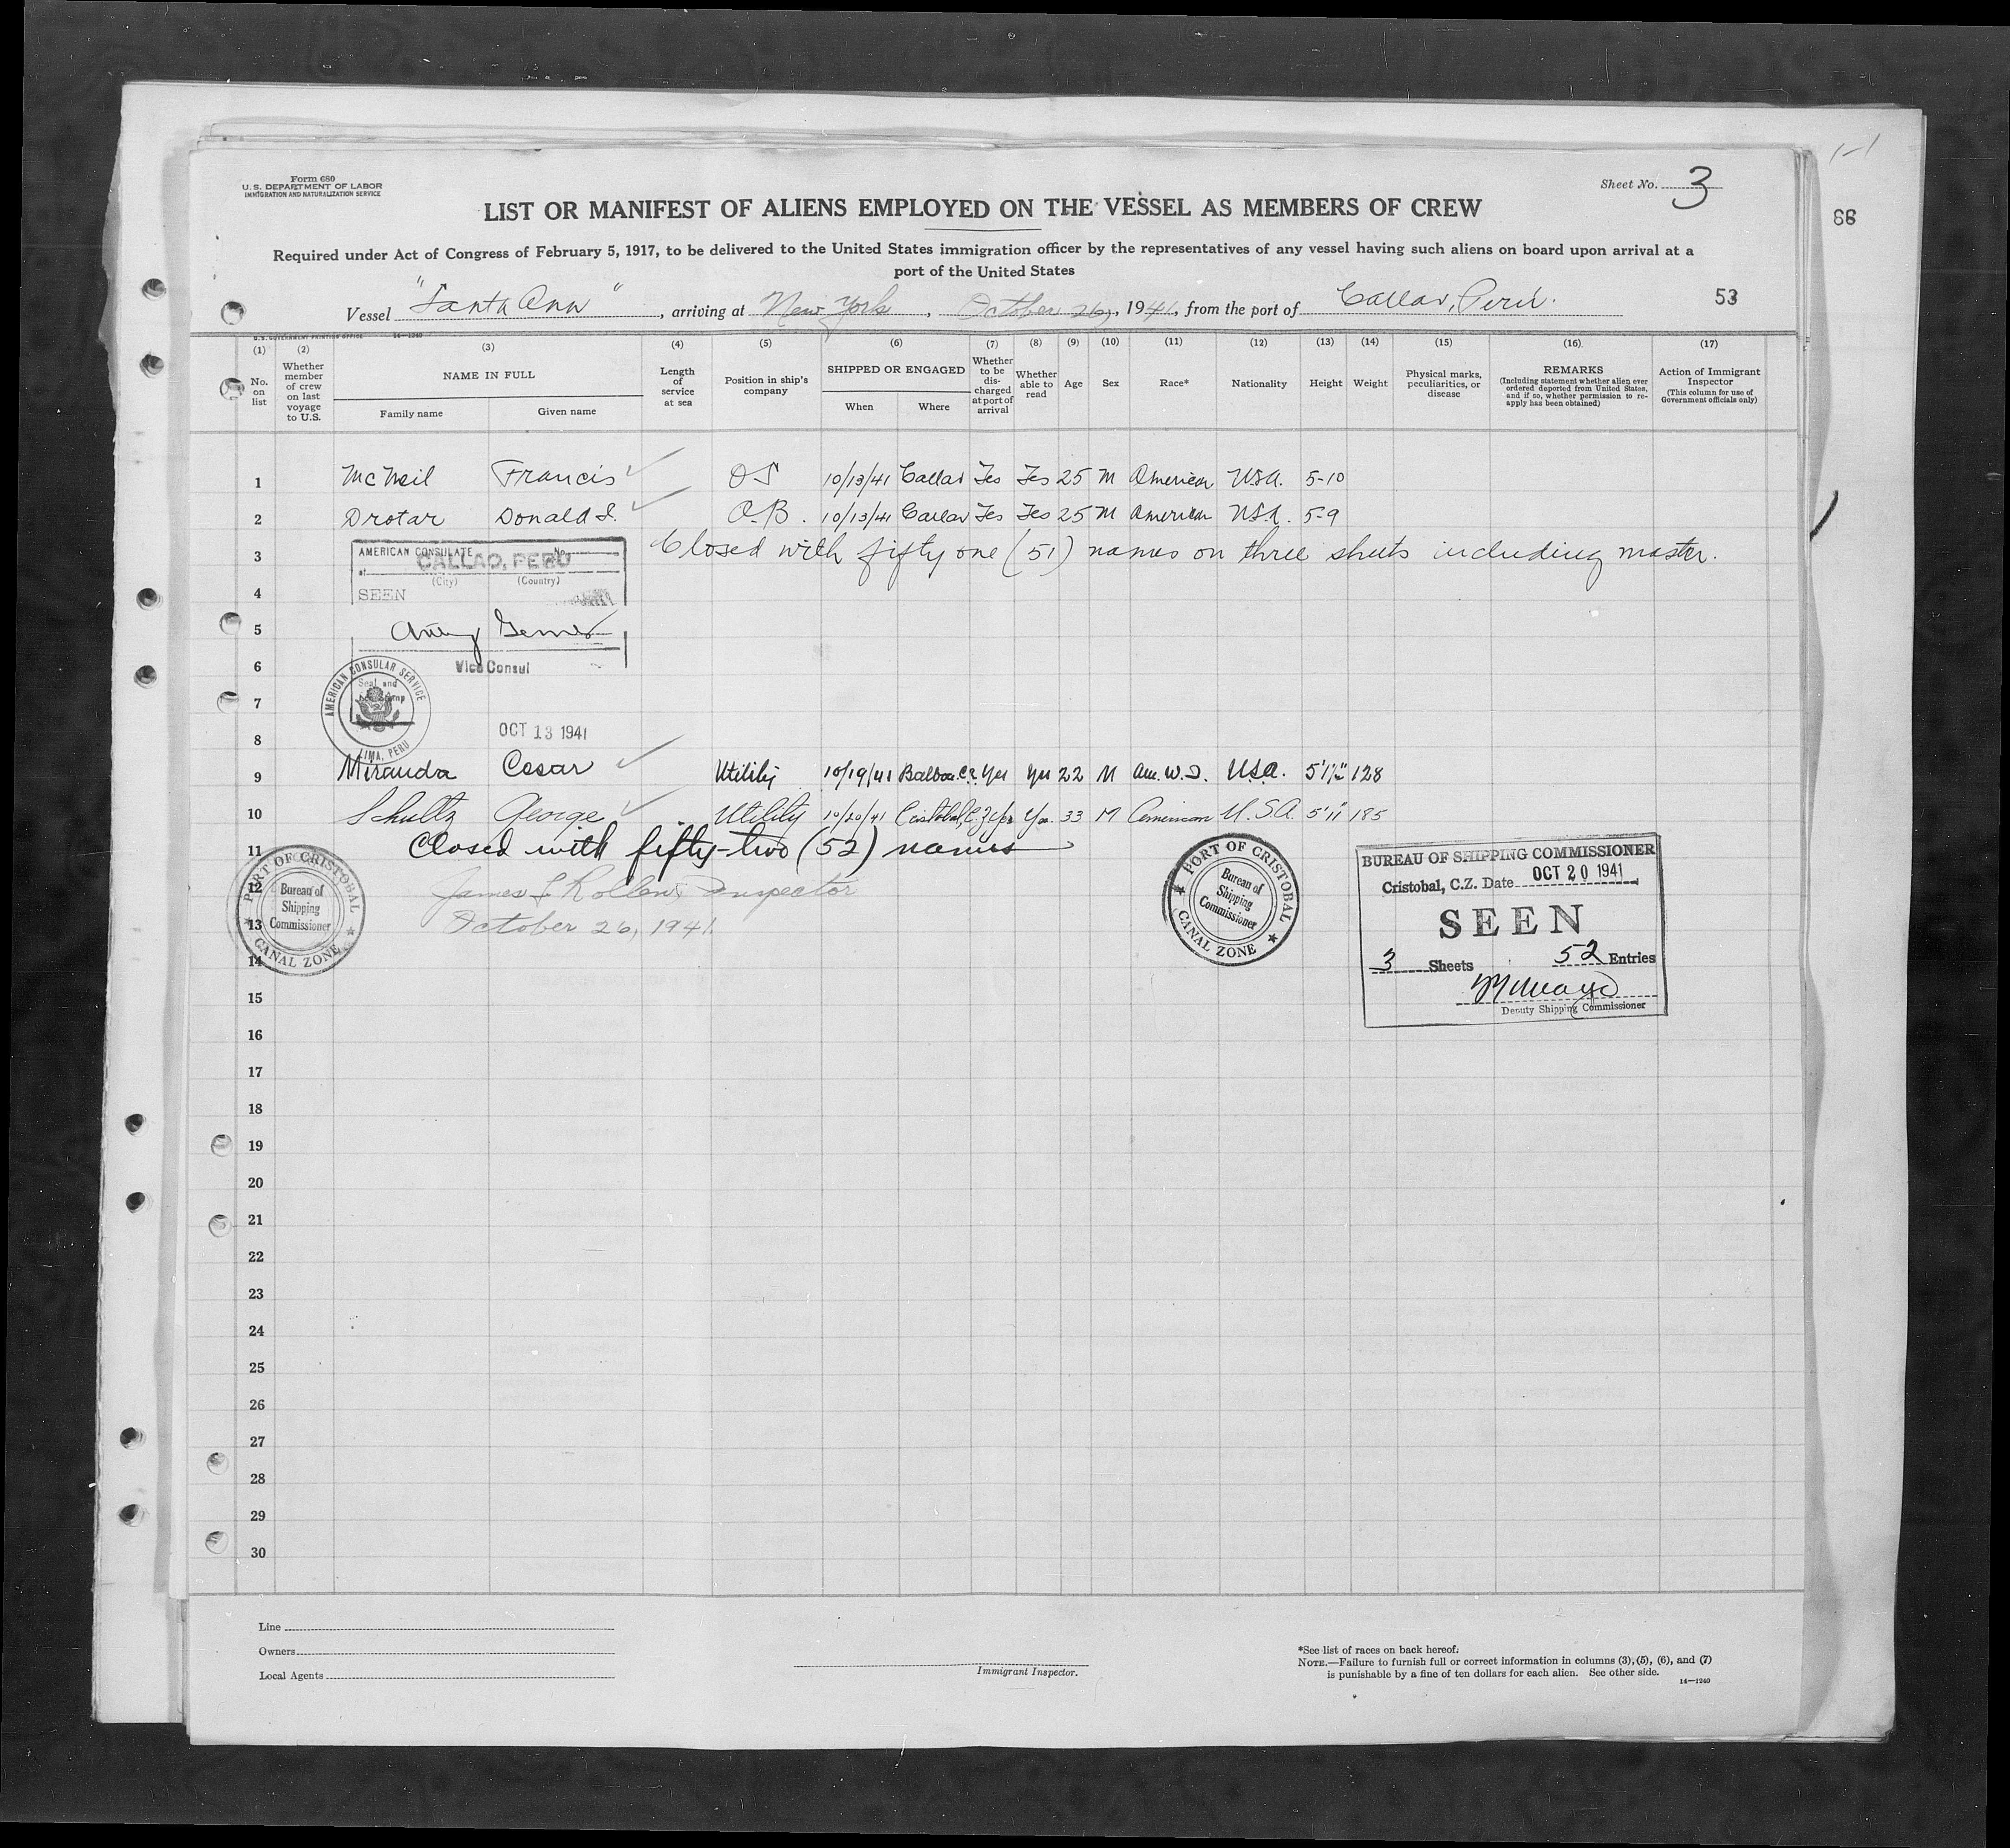 Form 680
U. S. DEPARTMENT OF LABOR
IMMIGRATION AND NATURALIZATION SERVICE
Sheet No. 3
88
LIST OR MANIFEST OF ALIENS EMPLOYED ON THE VESSEL AS MEMBERS OF CREW
Required under Act of Congress of February 5, 1917, to be delivered to the United States immigration officer by the representatives of any vessel having such aliens on board upon arrival at a
port of the United States
53
Vessel "Santa Ana", arriving at New York, October 26, 1941, from the port of Callao, Peru.
U. S. GOVERNMENT PRINTING OFFICE 14—1240
(1) (2) (3) (4) (5) (6) (7) (8) (9) (10) (11) (12) (13) (14) (15) (16) (17)
No. on list
Whether member of crew on last voyage to U.S.
NAME IN FULL
Family name Given name
Length of service at sea
Position in ship's company
SHIPPED OR ENGAGED
When Where
Whether to be discharged at port of arrival
Whether able to read
Age
Sex
Race*
Nationality
Height
Weight
Physical marks, peculiarities, or disease
REMARKS
(Including statement whether alien ever ordered deported from United States, and if so, whether permission to re-apply has been obtained)
Action of Immigrant Inspector
(This column for use of Government officials only)
1 McNeil Francis OS 10/13/41 Callao Yes Yes 25 M American USA. 5-10
2 Drotar Donald I. O.B. 10/13/41 Callao Yes Yes 25 M American USA. 5-9
3 Closed with fifty one (51) names on three sheets including master.
AMERICAN CONSULATE No.
at CALLAO, PERU
(City) (Country)
4
SEEN
5
6
Vice Consul
AMERICAN CONSULAR SERVICE
Seal and
LIMA, PERU
7
8
OCT 13 1941
9 Miranda Cesar Utility 10/19/41 Balboa C.Z. Yes Yes 22 M Am. W.I. U.S.A. 5'1½" 128
10 Schultz George Utility 10/20/41 Cristobal, C.Z. Yes Yes 33 M American U.S.A. 5'11" 185
11 Closed with fifty-two (52) names
12 James Inspector
13 October 26, 1941
14
PORT OF CRISTOBAL
Bureau of
Shipping
Commissioner
CANAL ZONE
PORT OF CRISTOBAL
Bureau of
Shipping
Commissioner
CANAL ZONE
BUREAU OF SHIPPING COMMISSIONER
Cristobal, C.Z. Date OCT 20 1941
SEEN
3 Sheets 52 Entries
Deputy Shipping Commissioner
15
16
17
18
19
20
21
22
23
24
25
26
27
28
29
30
Line
Owners
Local Agents
Immigrant Inspector.
*See list of races on back hereof.
NOTE.—Failure to furnish full or correct information in columns (3), (5), (6), and (7)
is punishable by a fine of ten dollars for each alien. See other side.
14—1240